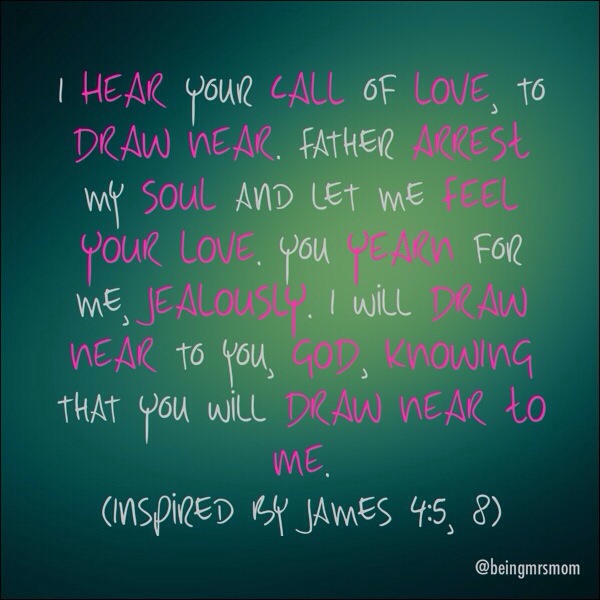 I HEAR YOUR CALL OF LOVE, TO
DRAW NEAR. FATHER ARREST
MY SOUL AND LET ME FEEL
YOUR LOVE. YOU YEARN FOR
ME, JEALOUSLY. I WILL DRAW
NEAR TO YOU, GOD, KNOWING
THAT YOU WILL DRAW NEAR TO
ME.
(INSPIRED BY JAMES 4:5, 8)
@beingmrsmom